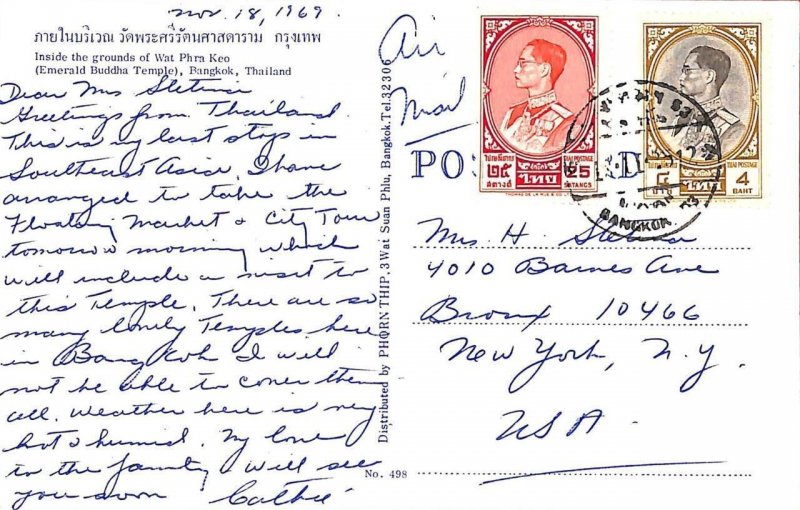 Nov. 18, 1969.
ภายในบริเวณ วัดพระศรีรัตนศาสดาราม กรุงเทพ
Inside the grounds of Wat Phra Keo
(Emerald Buddha Temple), Bangkok, Thailand
Dear Mrs
Greetings from Thailand
This is my last stop in
Southeast Asia. I have
arranged to take the
Floating Market & City Tour
tomorrow morning which
will include a visit to
this Temple. There are so
many lovely Temples here
in Bangkok I will
not be able to cover them
all. Weather here is very
hot & humid. My love
to the family Will see
you soon Cathie
Distributed by PHORN THIP, 3 Wat Suan Phlu, Bangkok. Tel. 32306
No. 498
Air
Mail
ไปรษณีย์ไทย
THAI POSTAGE
๒๕
25
สตางค์
ไทย
SATANGS
THOMAS DE LA RUE & CO
THAI POSTAGE
๔
4
ไทย
BAHT
BANGKOK
Mrs H
4010 Barnes Ave
Bronx 10466
New York, N.Y.
USA